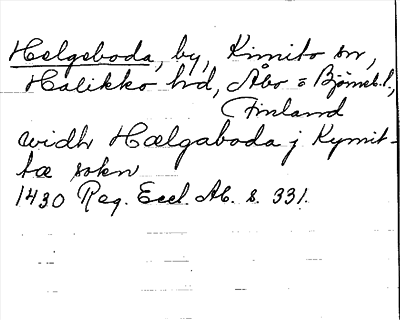 Helgeboda, by, Kimito sn,
Halikko hd, Åbo = Björneb. l,
Finland
widh Hælgaboda j Kymit-
tæ sokn
1430 Reg. Eccl. Ab. s. 331.